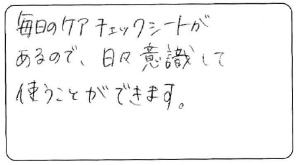 毎日のケアチェックシートが
あるので、日々意識して
使うことができます。